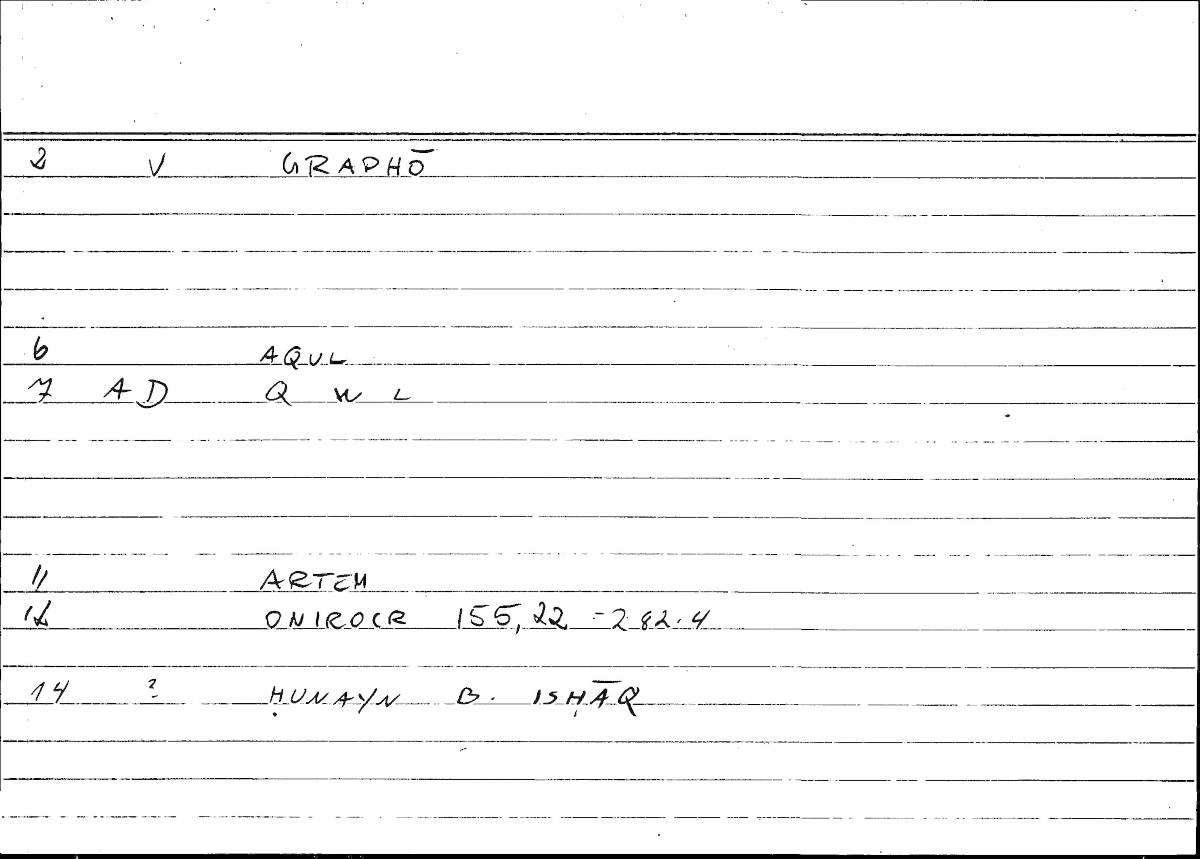 2 V GRAPHŌ
6 AQUL
7 AD Q W L
11 ARTEM
12 ONIROCR 155,22 - 282.4
14 ? ḤUNAYN B. ISḤĀQ